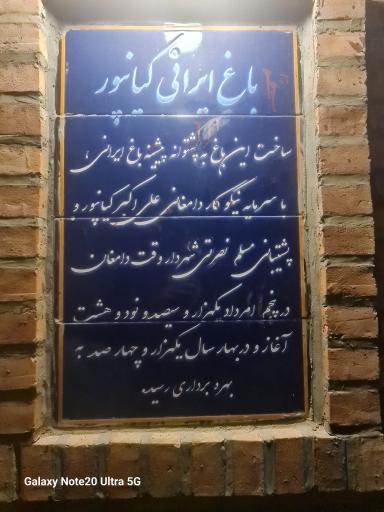 باغ ایرانی کیانپور
ساخت این باغ به پشتوانه پیشینه باغ ایرانی،
با سرمایه نیکوکار دامغانی علی اکبر کیانپور و
پشتیبانی مسلم نصرتی شهردار وقت دامغان
در پنجم امرداد یکهزار و سیصد و نود و هشت
آغاز و در بهار سال یکهزار و چهار صد به
بهره برداری رسید
Galaxy Note20 Ultra 5G